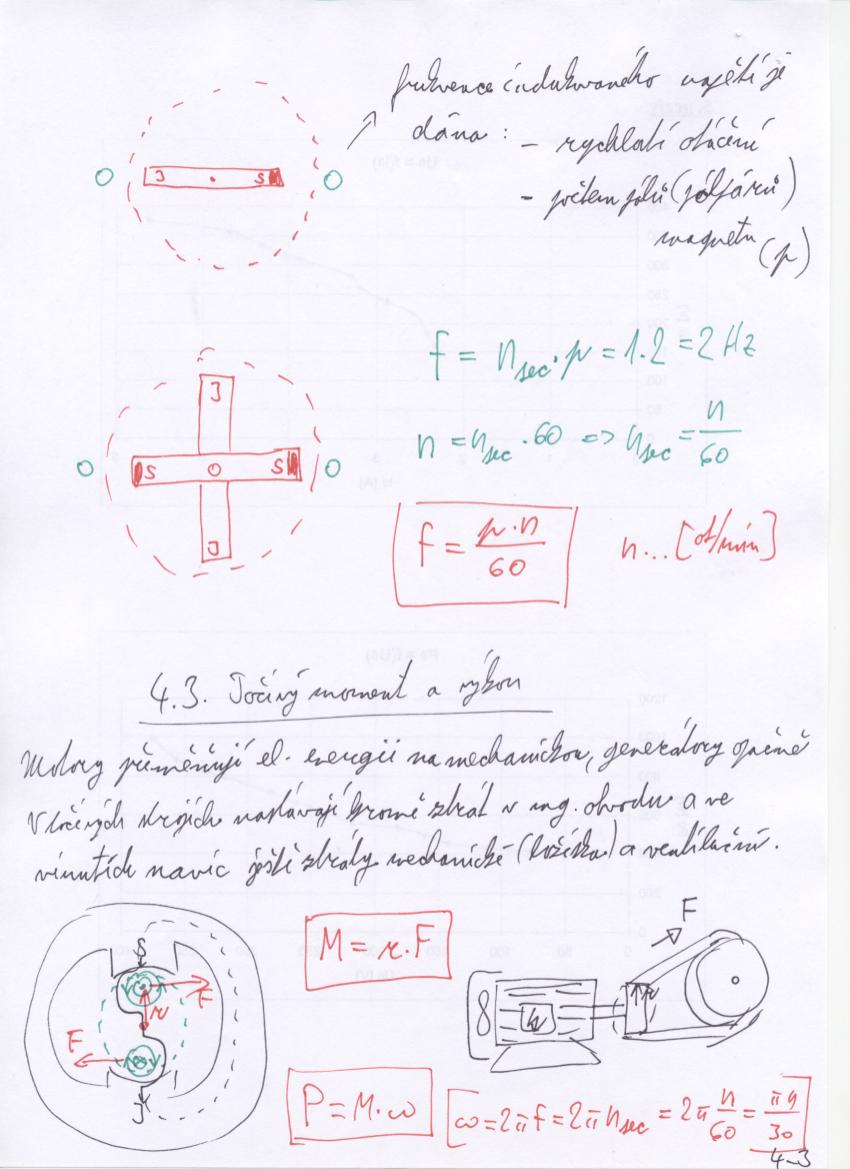 frekvence indukovaného napětí je
dána : - rychlostí otáčení
- počtem pólů (pólpárů)
magnetu (p)
J S
f = n_sec · p = 1.2 = 2 Hz
n = n_sec . 60 => n_sec = n/60
J
S O S
J
f = p.n/60
n... [ot/min]
4.3. Točivý moment a výkon
Motory přeměňují el. energii na mechanickou, generátory opačně
V točivých strojích nastávají kromě ztrát v mg. obvodu a ve
vinutích navíc ještě ztráty mechanické (ložiska) a ventilační.
S
F
r
F
J
M = r.F
F
r
P = M.ω
[ω = 2πf = 2πn_sec = 2π n/60 = πn/30
4-3